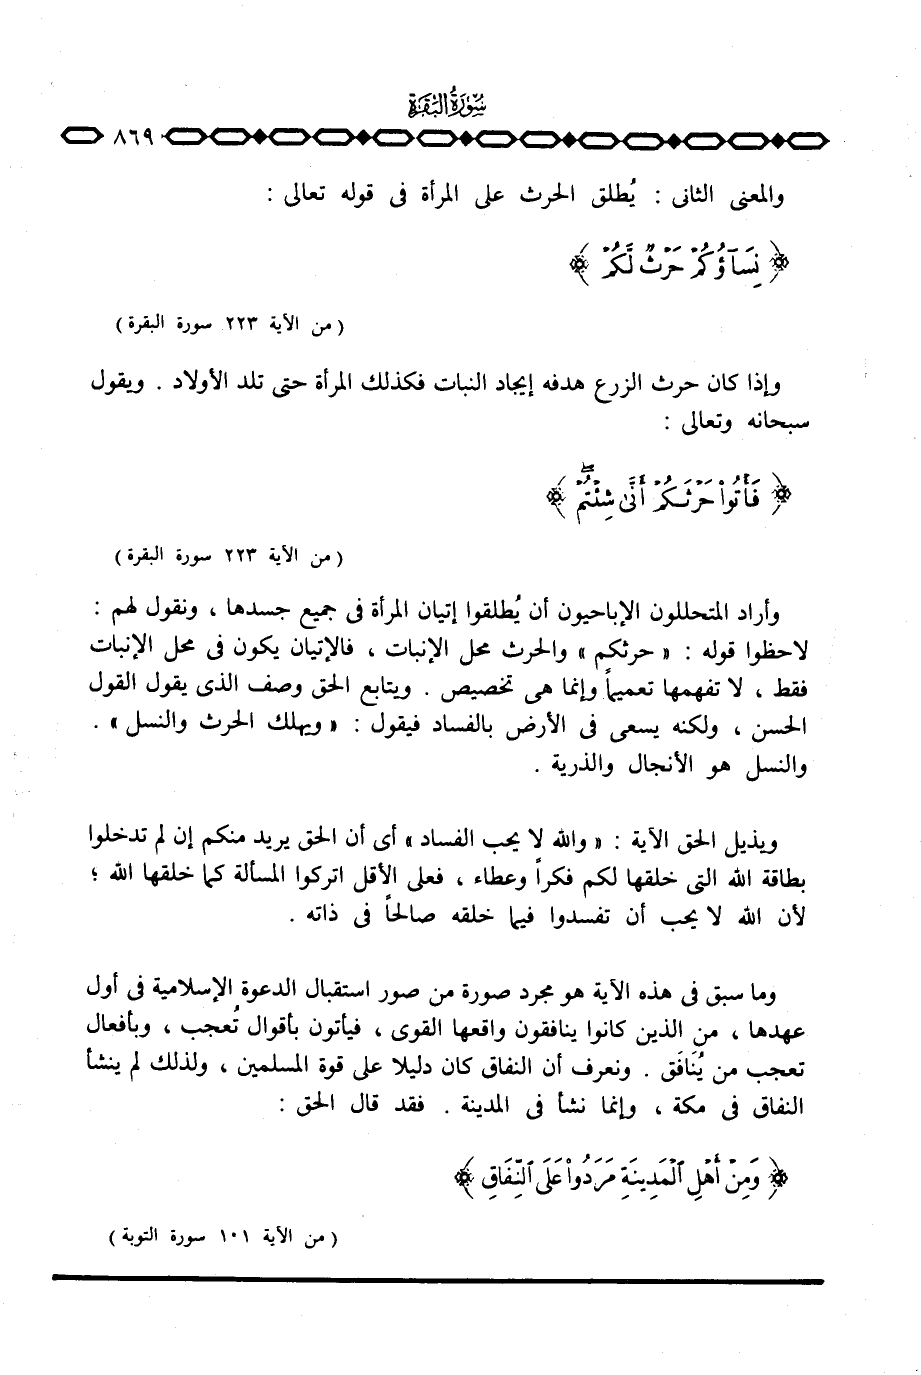 سُورَةُ البَقَرَة
٨٦٩
والمعنى الثانى : يُطلق الحرث على المرأة فى قوله تعالى :
﴿ نِسَآؤُكُمْ حَرْثٌ لَّكُمْ ﴾
( من الآية ٢٢٣ سورة البقرة )
وإذا كان حرث الزرع هدفه إيجاد النبات فكذلك المرأة حتى تلد الأولاد . ويقول
سبحانه وتعالى :
﴿ فَأْتُوا۟ حَرْثَكُمْ أَنَّىٰ شِئْتُمْ ۖ ﴾
( من الآية ٢٢٣ سورة البقرة )
وأراد المتحللون الإباحيون أن يُطلقوا إتيان المرأة فى جميع جسدها ، ونقول لهم :
لاحظوا قوله : « حرثكم » والحرث محل الإنبات ، فالإتيان يكون فى محل الإنبات
فقط ، لا تفهمها تعميماً وإنما هى تخصيص . ويتابع الحق وصف الذى يقول القول
الحسن ، ولكنه يسعى فى الأرض بالفساد فيقول : « ويهلك الحرث والنسل » .
والنسل هو الأنجال والذرية .
ويذيل الحق الآية : « والله لا يحب الفساد » أى أن الحق يريد منكم إن لم تدخلوا
بطاقة الله التى خلقها لكم فكراً وعطاء ، فعلى الأقل اتركوا المسألة كما خلقها الله ؛
لأن الله لا يحب أن تفسدوا فيما خلقه صالحاً فى ذاته .
وما سبق فى هذه الآية هو مجرد صورة من صور استقبال الدعوة الإسلامية فى أول
عهدها ، من الذين كانوا ينافقون واقعها القوى ، فيأتون بأقوال تُعجب ، وبأفعال
تعجب من يُنَافَق . ونعرف أن النفاق كان دليلا على قوة المسلمين ، ولذلك لم ينشأ
النفاق فى مكة ، وإنما نشأ فى المدينة . فقد قال الحق :
﴿ وَمِنْ أَهْلِ ٱلْمَدِينَةِ مَرَدُوا۟ عَلَى ٱلنِّفَاقِ ﴾
( من الآية ١٠١ سورة التوبة )